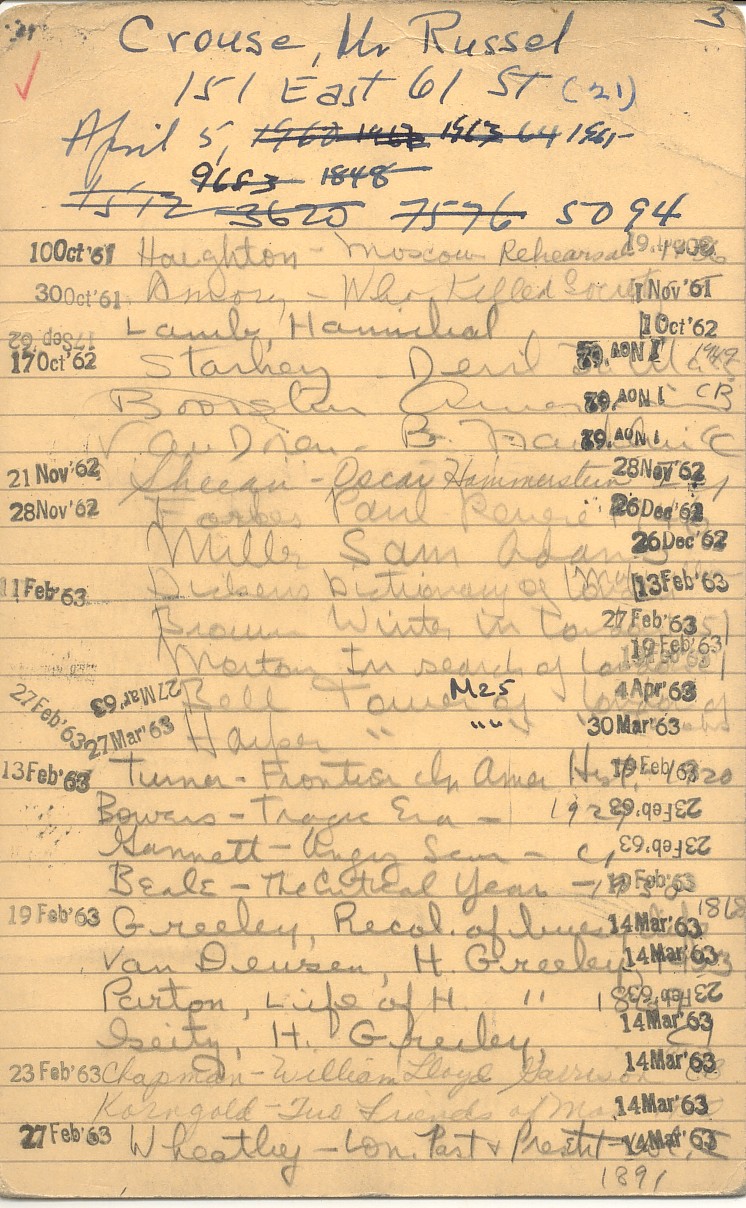 3
Crouse, Mr Russel
151 East 61 St (21)
April 5, 1960 1962 1963 64 1965
9683 1848
1512 3620 7576 5094
10Oct'61 Houghton - Moscow Rehearsal
30Oct'61 Amory - Who Killed Society 1Nov'61
17Sep'62 Lamb, Hannibal 1Oct'62
17Oct'62 Starkey Devil 1Nov'62 1949
Boorstin 1Nov'62 CB
Van Doren - B. Franklin 1Nov'62 C
21Nov'62 Sheean - Oscar Hammerstein 28Nov'62
28Nov'62 Forbes Paul Revere 26Dec'62
Miller Sam Adams 26Dec'62
11Feb'63 Dickens Dictionary of London 13Feb'63
Brown Winter in London 27Feb'63
Morton In search of London 19Feb'63
27Feb'63 27Mar'63 Bell Tower of London M25 4Apr'63
27Mar'63 Harper " " "" 30Mar'63
13Feb'63 Turner - Frontier in Amer Hist. 19Feb'63 1920
Bowers - Tragic Era - 1929 23Feb'63
Gannett - Angry Scar - C 23Feb'63
Beale - The Critical Year - 1930 19Feb'63
19Feb'63 Greeley, Recol. of busy life 14Mar'63 1868
Van Deusen, H. Greeley 14Mar'63 1953
Parton, Life of H. " 23Feb'63
Seitz, H. Greeley, 14Mar'63
23Feb'63 Chapman - William Lloyd Garrison 14Mar'63
Korngold - Two Friends of Man 14Mar'63
27Feb'63 Wheatley - Lon. Past & Present 14Mar'63
1891